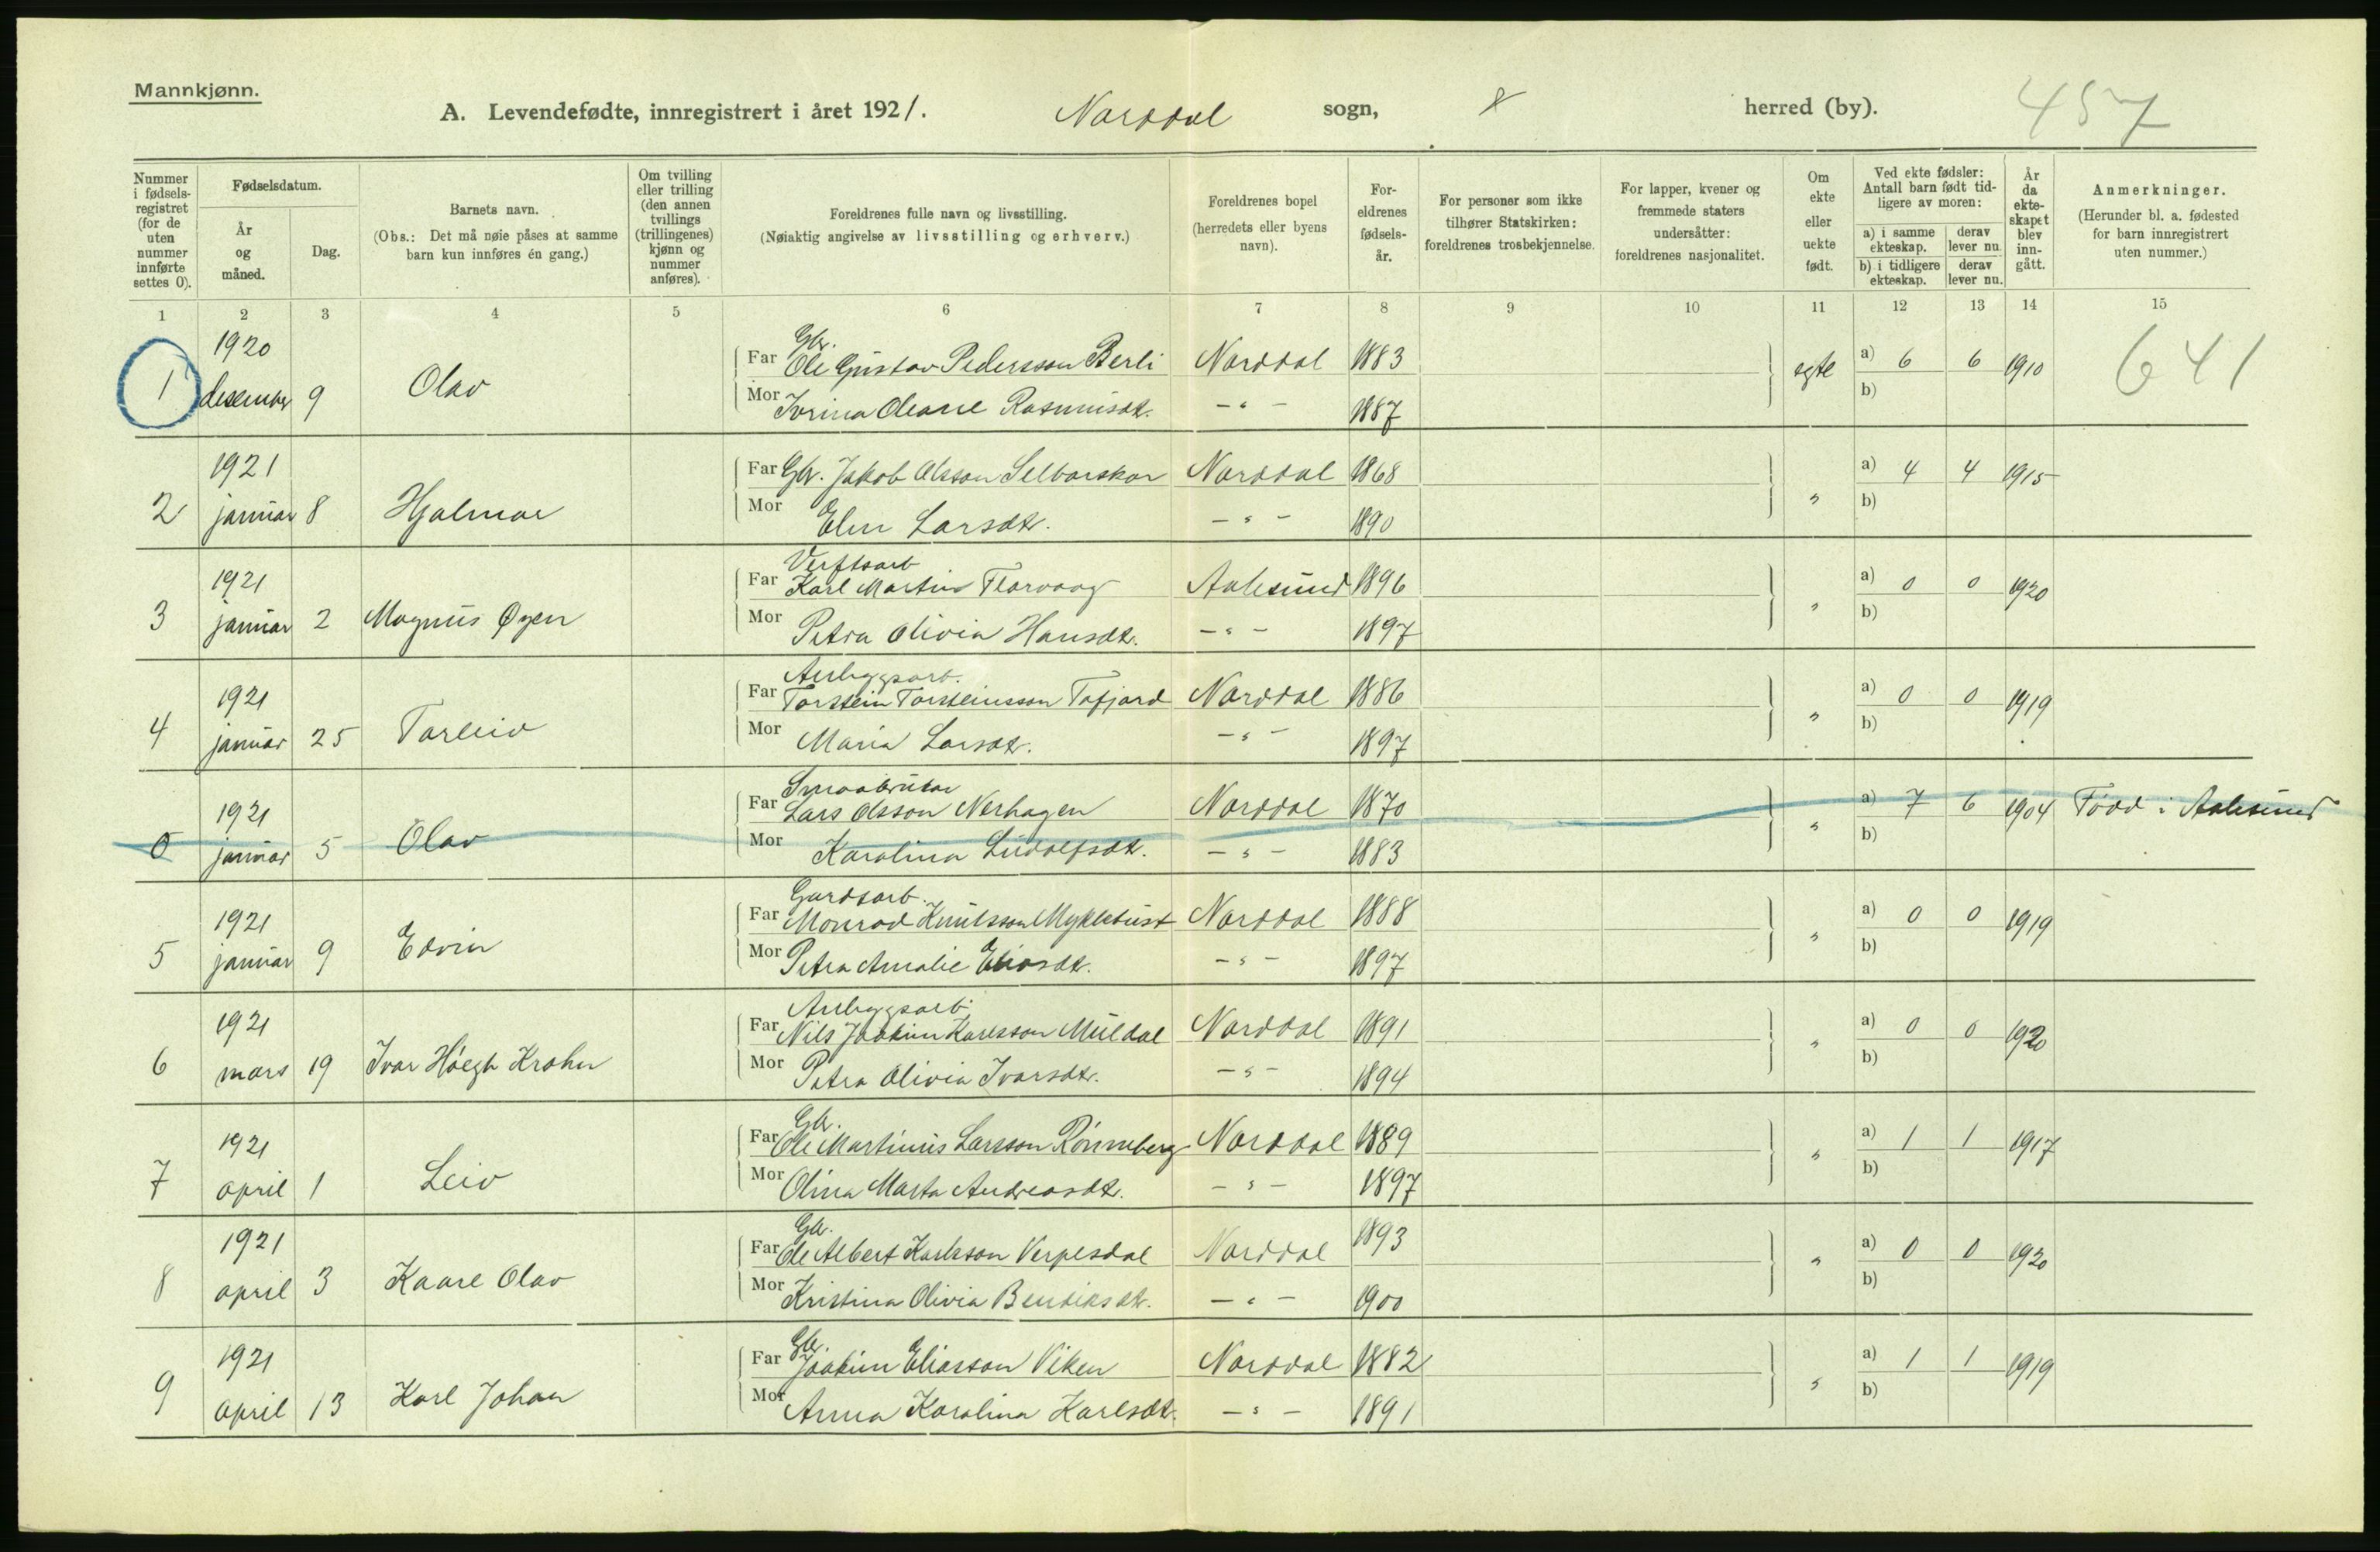 Mannkjønn.
A. Levendefødte, innregistrert i året 1921. Norddal sogn, herred (by). 457
Nummer i fødselsregistret (for de uten nummer innførte settes 0).
Fødselsdatum.
År og måned.
Dag.
Barnets navn.
(Obs.: Det må nøie påses at samme barn kun innføres én gang.)
Om tvilling eller trilling (den annen tvillings (trillingenes) kjønn og nummer anføres).
Foreldrenes fulle navn og livsstilling.
(Nøiaktig angivelse av livsstilling og erhverv.)
Foreldrenes bopel (herredets eller byens navn).
Foreldrenes fødselsår.
For personer som ikke tilhører Statskirken: foreldrenes trosbekjennelse.
For lapper, kvener og fremmede staters undersåtter: foreldrenes nasjonalitet.
Om ekte eller uekte født.
Ved ekte fødsler: Antall barn født tidligere av moren:
a) i samme ekteskap. derav lever nu.
b) i tidligere ekteskap. derav lever nu.
År da ekteskapet blev inngått.
Anmerkninger.
(Herunder bl. a. fødested for barn innregistrert uten nummer.)
1 2 3 4 5 6 7 8 9 10 11 12 13 14 15
1920 Gbr.
Far Ole Gustav Pedersson Berli Norddal 1883 a) 6 6 1910 641
1 desember 9 Olav egte b)
Mor Ivrina Oleane Rasmusdt. – " – 1887
1921 Far Gbr. Jakob Olsson Selboskar Norddal 1868 a) 4 4 1915
2 januar 8 Hjalmar " b)
Mor Elen Larsdt. – " – 1890
1921 Verftsarb
Far Karl Martin Flarvaag Aalesund 1896 a) 0 0 1920
3 januar 2 Magnus Øyen " b)
Mor Petra Olivia Hansdt. – " – 1897
1921 Anleggsarb.
Far Torstein Torsteinsson Tafjord Norddal 1886 a) 0 0 1919
4 januar 25 Torleiv " b)
Mor Maria Larsdt. – " – 1897
1921 Smaabrukar
Far Lars Olsson Nerhagen Norddal 1870 a) 7 6 1904 Född i Aalesund
0 januar 5 Olav " b)
Mor Karolina Ludolfsdt. – " – 1883
1921 Gardsarb.
Far Monrad Knutsson Myklebust Norddal 1888 a) 0 0 1919
5 januar 9 Edvin " b)
Mor Petra Amalie Eliasdt. – " – 1897
1921 Anleggsarb.
Far Nils Joakim Karlsson Muldal Norddal 1891 a) 0 0 1920
6 mars 19 Ivar Höegh Krohn " b)
Mor Petra Olivia Ivarsdt. – " – 1894
1921 Gbr.
Far Ole Martinus Larsson Rönneberg Norddal 1889 a) 1 1 1917
7 april 1 Leiv " b)
Mor Olina Marta Andreasdt. – " – 1897
1921 Gbr.
Far Ole Albert Karlsson Verpesdal Norddal 1893 a) 0 0 1920
8 april 3 Kaare Olav " b)
Mor Kristina Olivia Bendiksdt. – " – 1900
1921 Gbr.
Far Joakim Eliasson Viken Norddal 1882 a) 1 1 1919
9 april 13 Karl Johan " b)
Mor Anna Karolina Karlsdt. – " – 1891